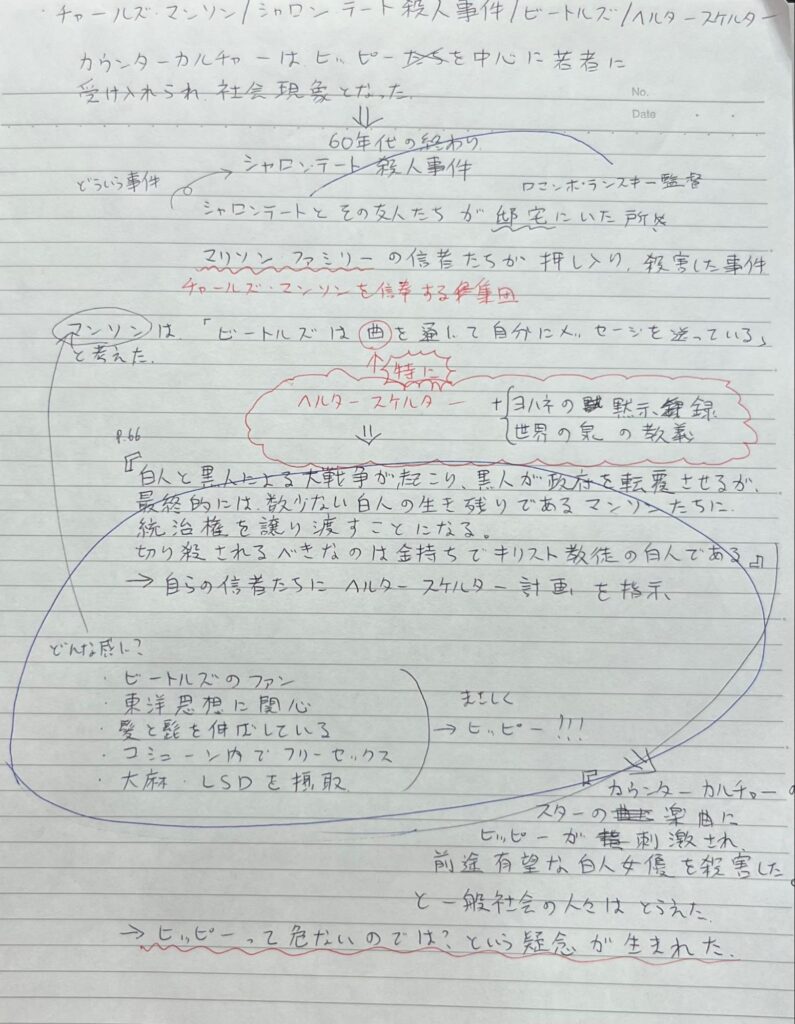 ・チャールズ・マンソン/シャロン・テート殺人事件/ビートルズ/ヘルタースケルター
カウンターカルチャーは、ヒッピーを中心に若者に
受け入れられ、社会現象となった。
No.
Date
⇓
60年代の終わり
シャロン・テート殺人事件
どういう事件
ロマンポランスキー監督
シャロンテートとその友人たちが邸宅にいた所、
マリソンファミリーの信者たちが押し入り、殺害した事件
チャールズ・マンソンを信奉する集団
マンソンは、「ビートルズは曲を通して自分にメッセージを送っている」
と考えた。
↑特に
ヘルタースケルター + ヨハネの黙示録
世界の泉の教義
⇓
P.66
『白人と黒人による大戦争が起こり、黒人が政府を転覆させるが、
最終的には、数少ない白人の生き残りであるマンソンたちに、
統治権を譲り渡すことになる。
切り殺されるべきなのは金持ちでキリスト教徒の白人である』
→ 自らの信者たちにヘルタースケルター計画を指示
どんな感じに?
・ビートルズのファン
・東洋思想に関心
・髪と髭を伸ばしている
・コミューン内でフリーセックス
・大麻・LSDを摂取
まさしく
→ ヒッピー!!!
『カウンターカルチャーの
スターの楽曲に
ヒッピーが刺激され、
前途有望な白人女優を殺害した。
と一般社会の人々はとらえた。
→ ヒッピーって危ないのでは?という疑念が生まれた。